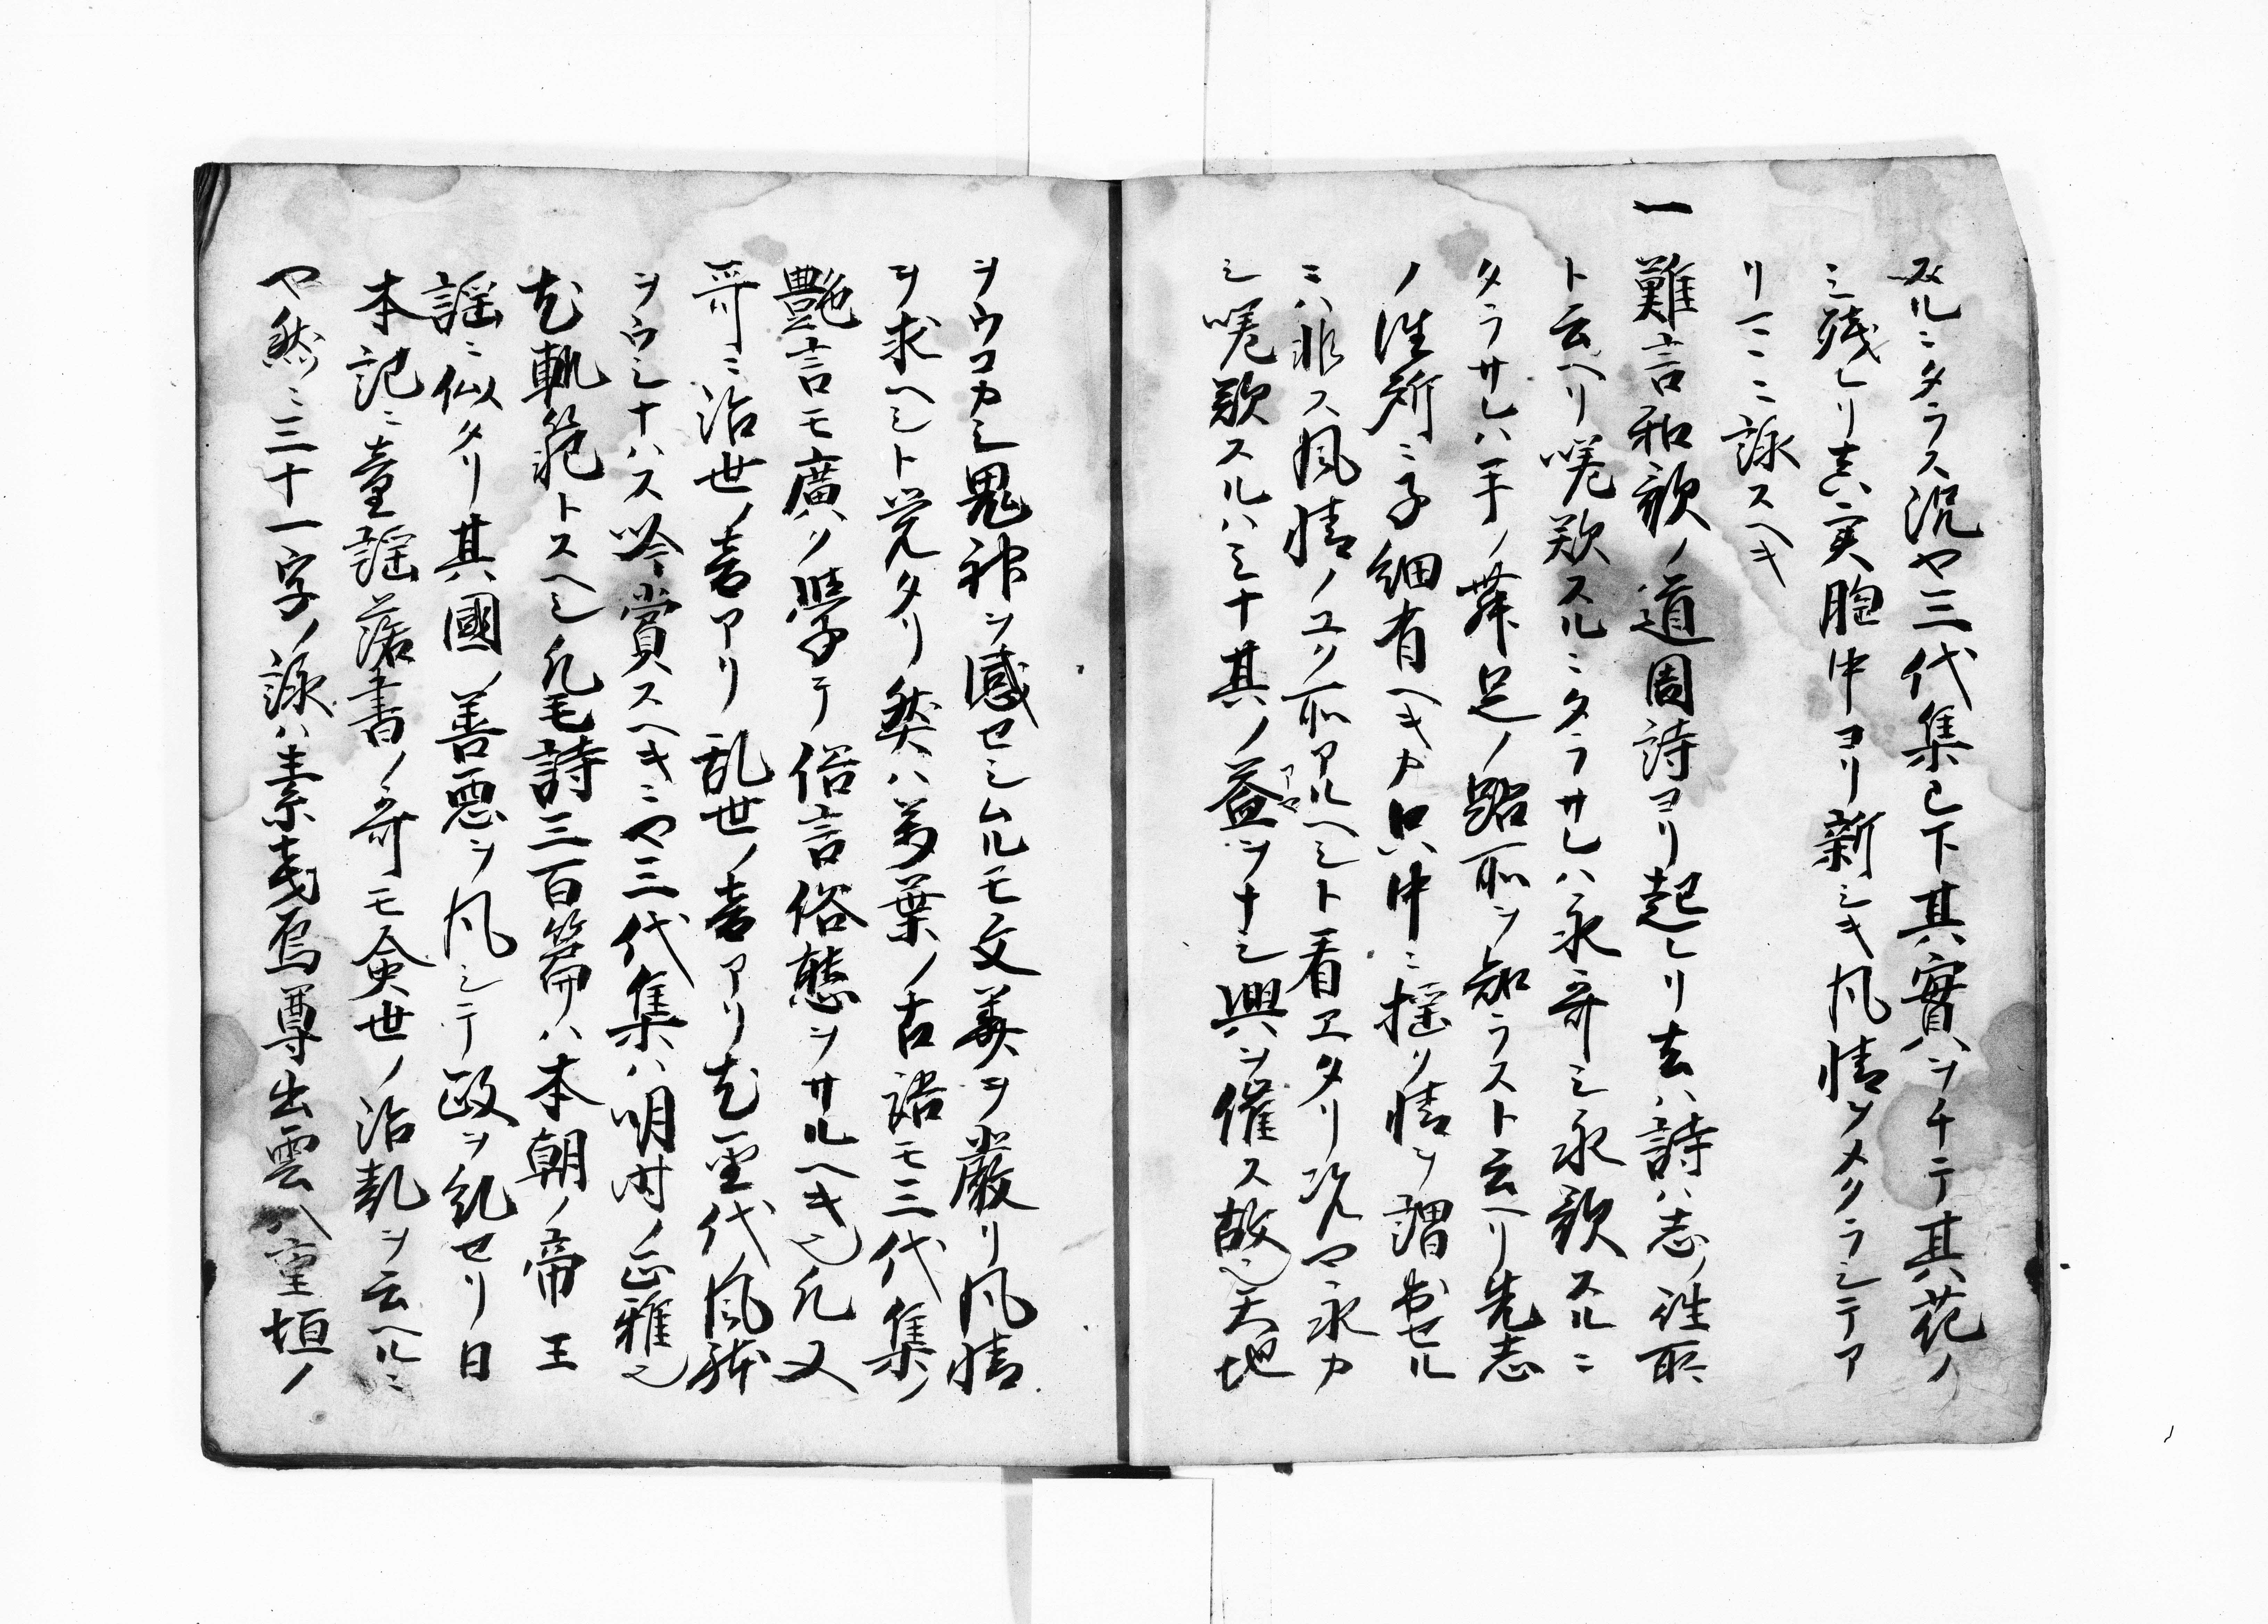 スルニタラス況ヤ三代集已下其實ヲチテ其花ノ
ミ残レリ真実胸中ヨリ新シキ風情ヲメクラシテア
リ一ニニ詠スヘキ
一難言和歌ノ道周詩ヨリ起レリ去ハ詩ハ志ノ往所
ト云ヘリ嗟歎スルニタラサレハ永哥シ永歌スルニ
タラサレハ手ノ舞足ノ蹈所ヲ知ラスト云ヘリ先志
ノ往所ニ子細有ヘキカ只中ニ揺リ情ヲ謂出セル
ニハ非ス風情ノユク所アルヘシト看エタリ次ヤ永カ
シ嗟歎スルハミナ其ノ益ヲナシ興ヲ催ス故也天地
ヲウコカシ鬼神ヲ感セシムルモ文義ヲ厳リ風情
ヲ求ヘシト覚タリ然ハ万葉ノ古語モ三代集ノ
艶言モ廣ク學テ俗言俗態ヲサルヘキ也凡又
哥ニ治世ノ音アリ乱世ノ音アリ尤聖代風躰
ヲウシナハス吟賞スヘキニヤ三代集ハ明時ノ正雅也
尤軌範トスヘシ凡毛詩三百篇ハ本朝ノ帝王
謡ニ似タリ其國ノ善悪ヲ風シテ政ヲ糺セリ日
本記ニ童謡落書ノ哥モ僉世ノ治乱ヲ云ヘルニ
ヤ然ニ三十一字ノ詠ハ素戔烏尊出雲八重垣ノ